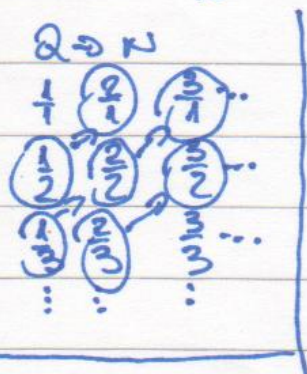 Q → N
1/1 2/1 3/1 ...
1/2 2/2 3/2 ...
1/3 2/3 3/3 ...
... ... ...